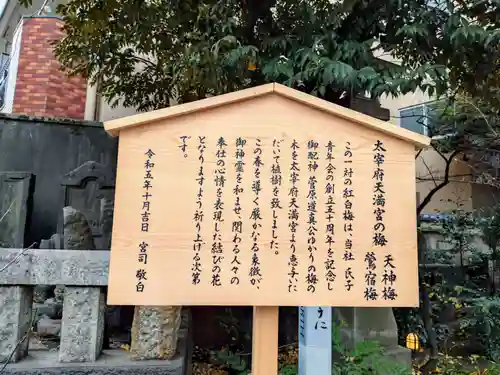 太宰府天満宮の梅 天神梅
鶯宿梅
この一対の紅白梅は、当社 氏子
青年会の創立五十周年を記念し
御配神 菅原道真公ゆかりの梅の
木を太宰府天満宮より恵与いた
だいて植樹致しました。
この春を導く厳かなる象徴が、
御神霊を和ませ、関わる人々の
奉仕の心情を表現した結びの花
となりますよう祈り上げる次第
です。
令和五年十月吉日 宮司 敬白
うに